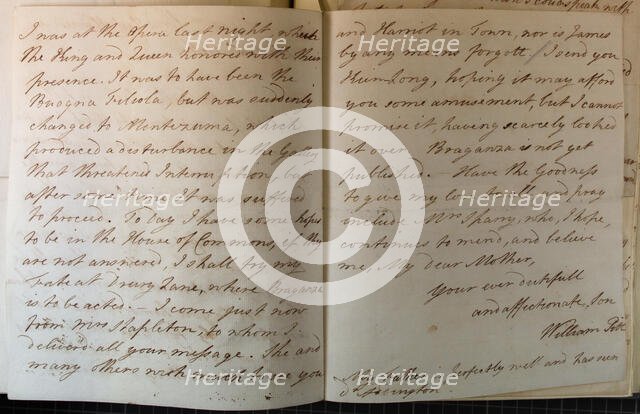 I was at the Opera last night which
the King and Queen honored with their
presence. It was to have been the
Buogna Filiola, but was suddenly
changed to Montezuma, which
produced a disturbance in the Gallery
that threatened Interruption but
after some time It was suffered
to proceed. To day I have some hopes
to be in the House of Commons, if they
are not answered, I shall try my
Fate at Drury Lane, where Braganza
is to be acted. — I come just now
from Mrs Stapleton, to whom I
delivered all your message. She and
many others wish much have you
and Harriot in Town, nor is James
by any means forgott. I send you
Hien-Long, hoping it may afford
you some amusement, but I cannot
promise it, having scarcely looked
it over. Braganza is not yet
publish'd. — Have the Goodness
to give my and pray
include Mrs Sparry, who, I hope,
continues to mend, and believe
me, My dear Mother,
Your ever dutifull
and affectionate, Son
William Pitt
My is perfectly well and has seen
Dr Addington
Heritage
Heritage
Heritage
Heritage
Heritage
Heritage
C